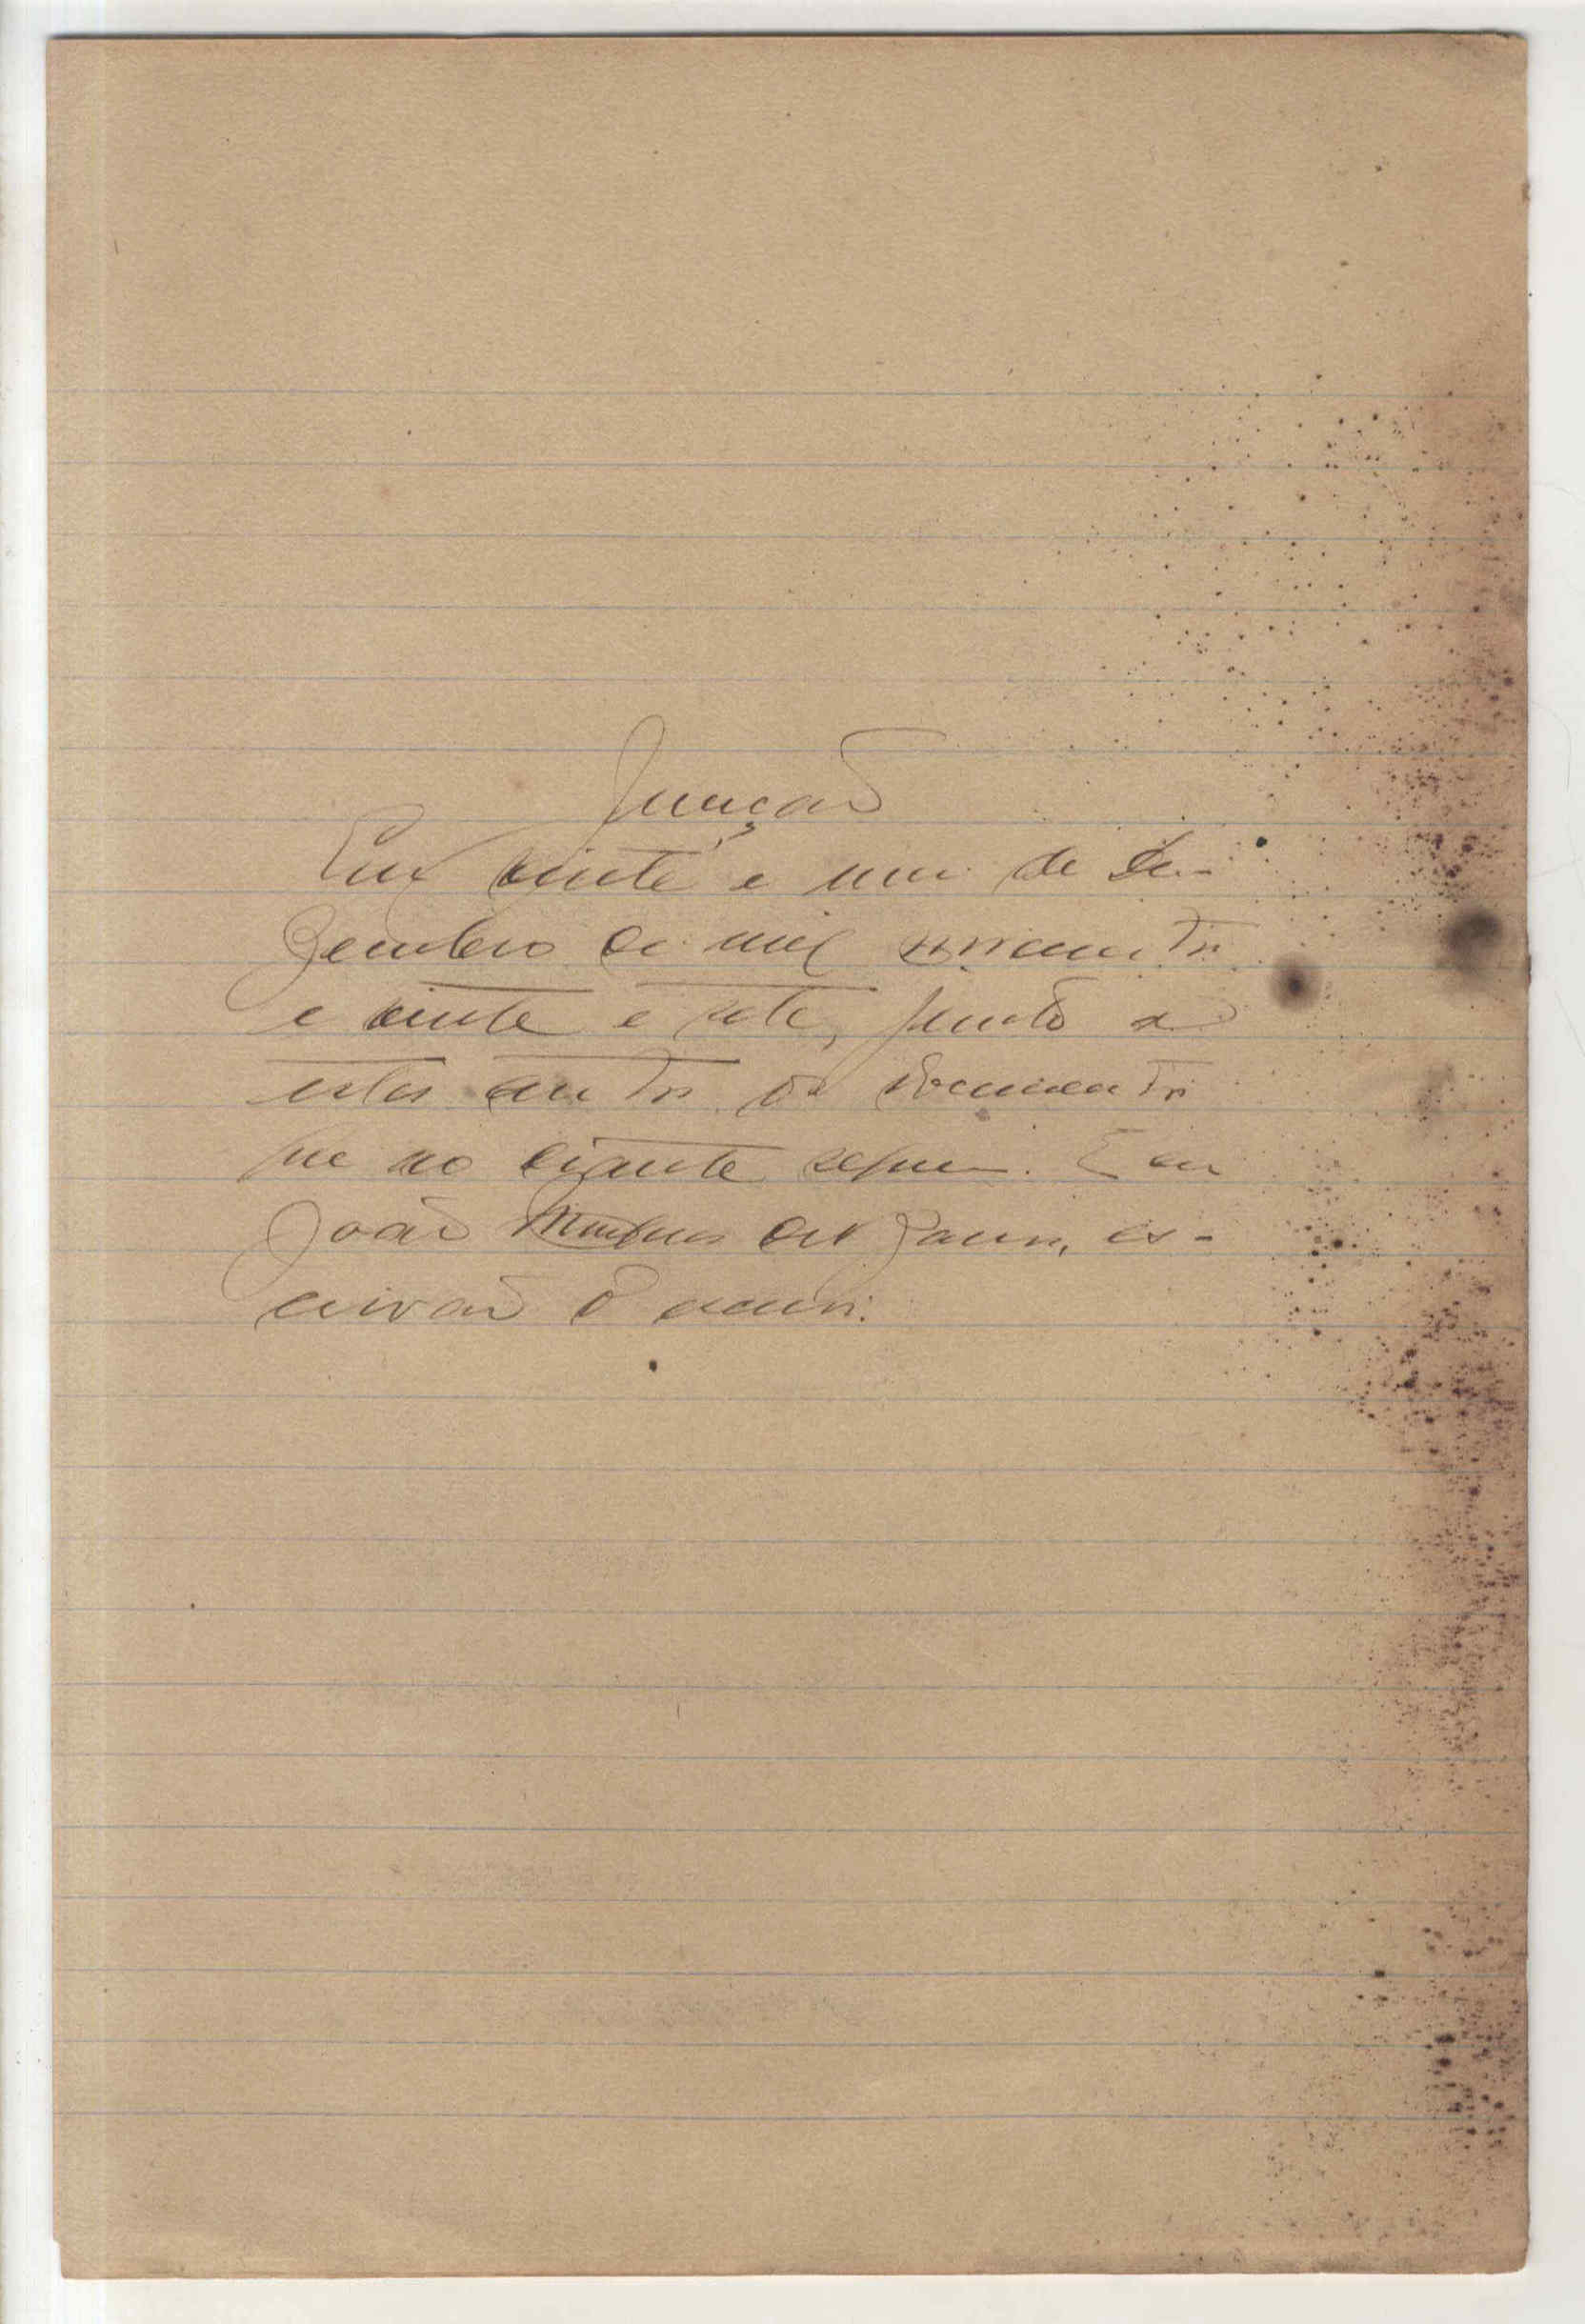 Junção
Em vinte e um de De-
zembro de mil novecentos
e vinte e sete, junto a
estes autos os documentos
que ao diante seguem. Eu
João de es-
crivão o escrevi.